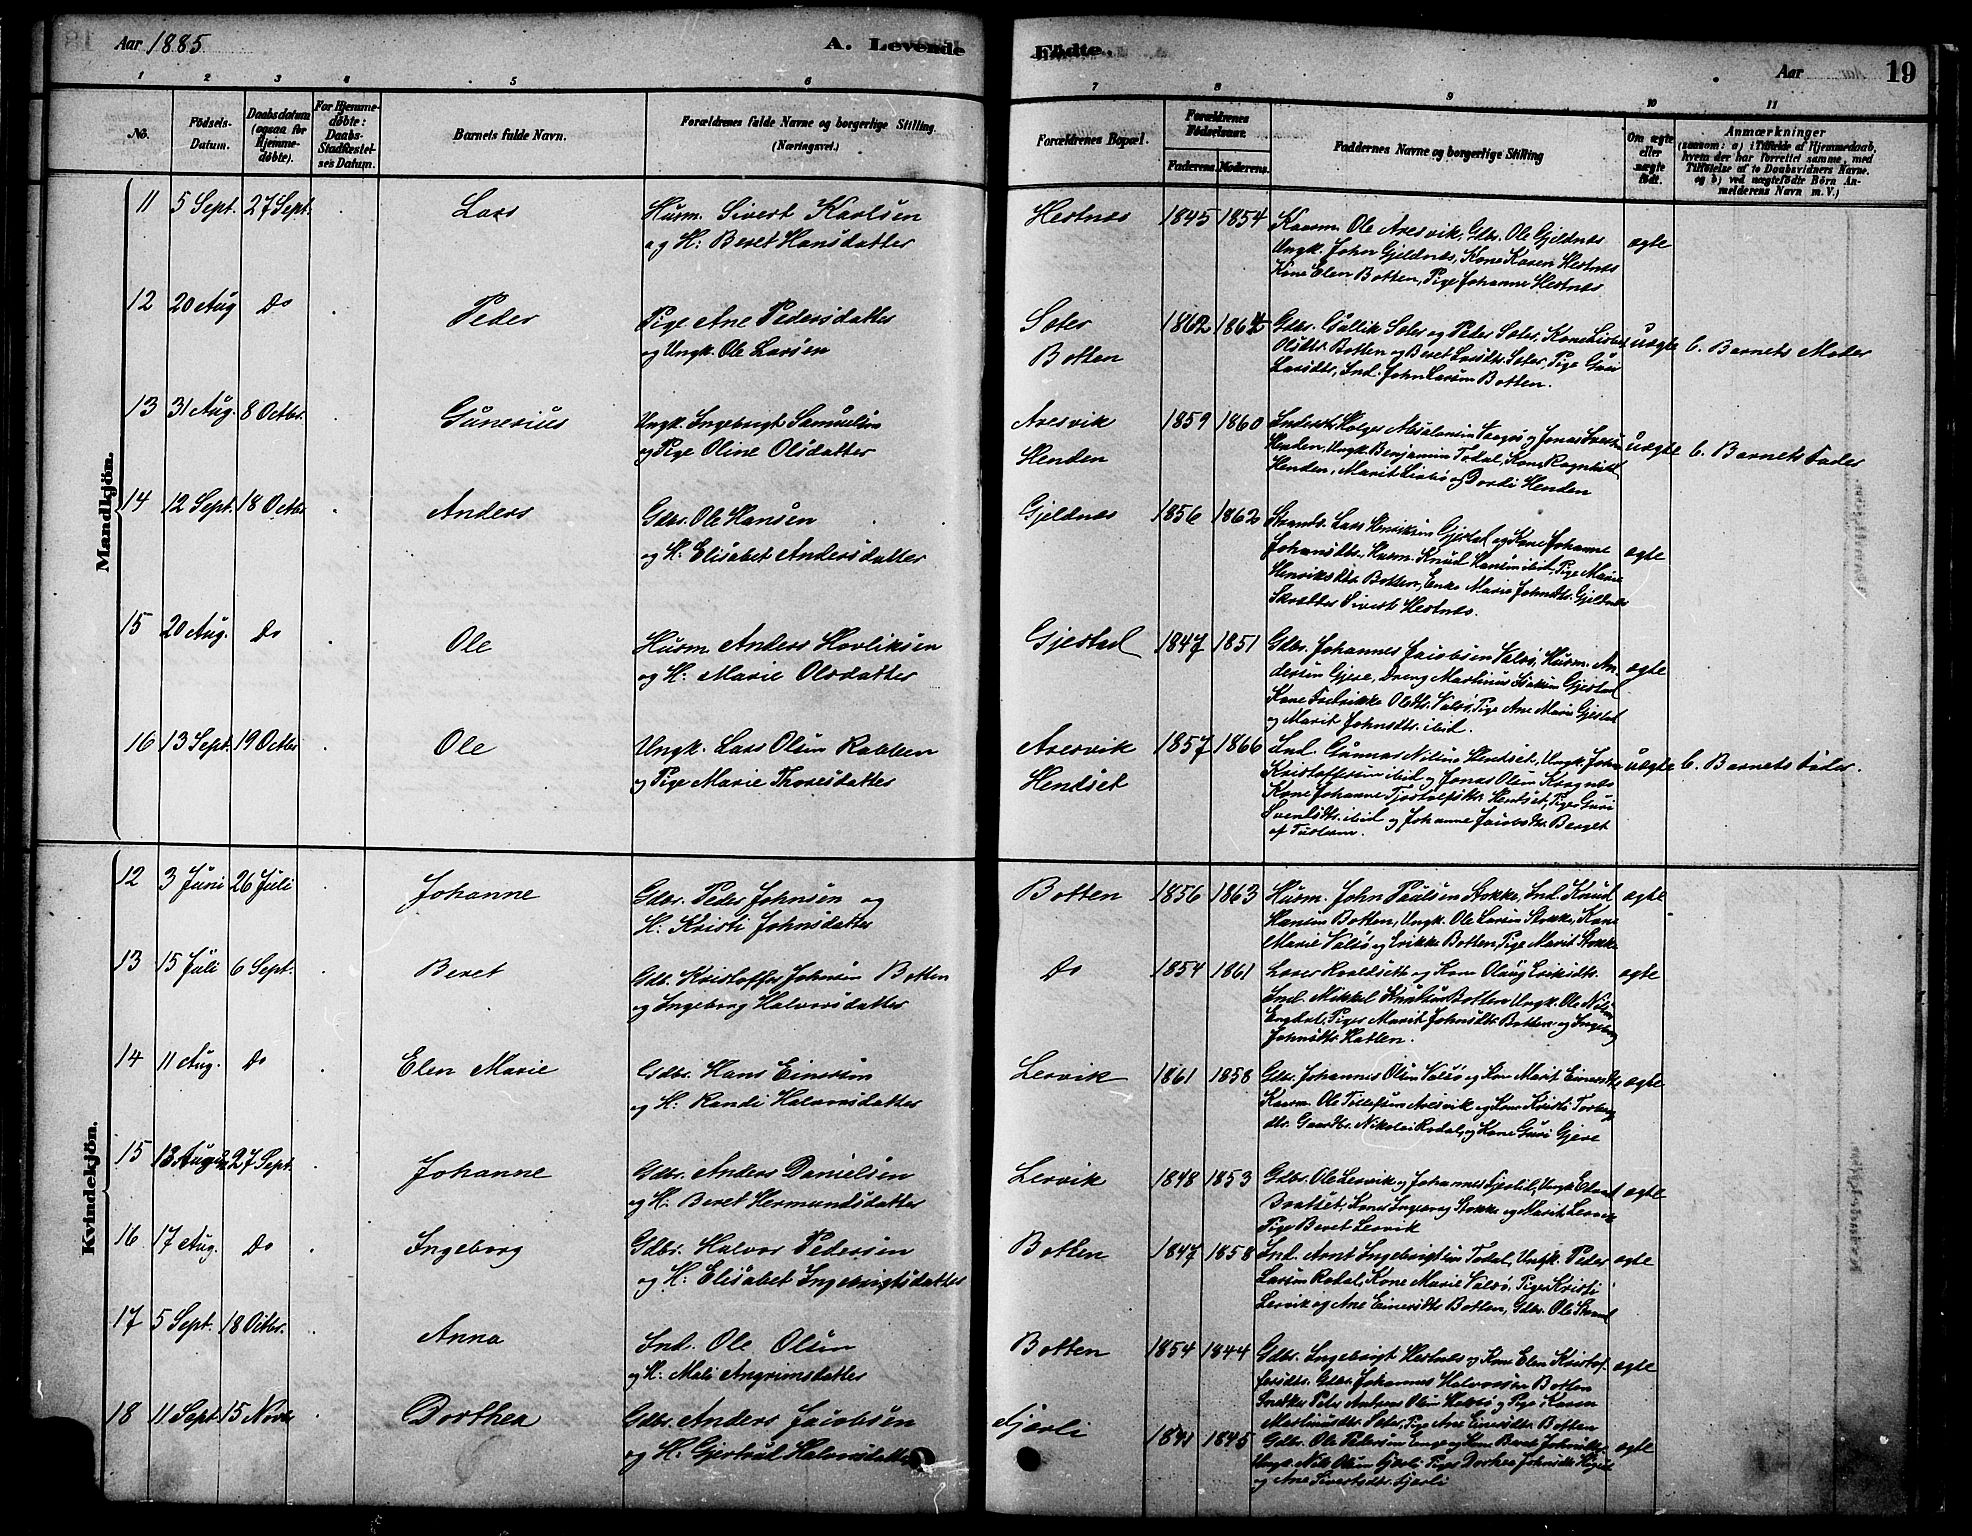 Aar 1885
A. Levende
Fødte.
Aar
19
1 2 3 4 5 6 7 8 9 10 11
No.
Fødsels-
Datum.
Daabsdatum
(ogsaa for
Hjemme-
døbte).
For Hjemme-
døbte:
Daabs-
Stadfæstel-
ses Datum.
Barnets fulde Navn.
Forældrenes fulde Navne og borgerlige Stilling
(Næringsvei.)
Forældrenes Bopæl.
Forældrenes
Fødselsaar.
Faderens. Moderens.
Faddernes Navne og borgerlige Stilling
Om ægte
eller
uægte
født.
Anmærkninger
(saasom: a) i Tilfælde af Hjemmedaab,
hvem der har forrettet samme, med
Tilføielse af to Daabsvidners Navne.
og b) ved uægtefødte Børn An-
melderens Navn m. V.)
Mandkjøn.
11 5 Sept. 27 Sept. Lars Husm. Sivert Karlsen
og H: Beret Hansdatter
Hestnæs 1845 1854 Kaarm. Ole Aresvik, Gdbr. Ole Gjeldnæs
Ungk. John Gjeldnæs, Kone Karen Hestnæs
Kone Elen Botten, Pige Johanne Hestnæs
ægte
12 20 Aug Do Peder Pige Ane Pedersdatter
og Ungk. Ole Larsen
Soter
Botten
1862 1864 Gdbr. Gullik Soter og Peder Soter, Kone
Olsdtr. Botten og Beret Larsdtr. Soter, Pige Guri
Larsdtr, Ind. John Larsen Botten.
uægte b. Barnets Moder
13 31 Aug. 8 Octbr. Gunerius Ungk. Ingebrigt Samuelsen
og Pige Oline Olsdatter
Aresvik
Henden
1859 1860 Holger Absalonsen og Jonas
Henden, Ungk. Benjamin Todal, Kone Ragnhild
Henden, Marit og Dordi Henden
uægte b. Barnets Fader
14 12 Sept. 18 Octbr Anders Gdbr. Ole Hansen
og H. Elisabet Andersdatter
Gjeldnæs 1856 1862 Strands. Lars Henriksen Gjestad og Kone Johanne
Johansdtr., Husm. Knud Hansen ibid, Pige Marie
Henriksdtr Botten, Enke Marie Johnsdtr. Gjeldnæs
Skrædder Sivert Hestnæs.
ægte
15 20 Aug. Do Ole Husm. Anders Hovliksen
og H: Marie Olsdatter
Gjestad 1847 1851 Gdbr. Johannes Jacobsen Valsø, Husm. An-
dersen Gjere, Dreng Martinus Gjestad
Kone Fredrikke Olsdtr. Valsø, Pige Ane Marie Gjestad
og Marit Johnsdtr. ibid.
ægte
16 13 Sept. 19 Octbr Ole Ungk. Lars Olsen Rabben
og Pige Marie Thoresdatter
Aresvik
Hendset
1857 1866 Ind. Gunnar Nilsen Hendset, Ungk. John
Kristoffersen ibid og Jonas Olsen Kragnæs
Kone Johanne Hendset, Pige Guri
Svendsdtr. ibid og Johanne Jacobsdtr. Berget
af Tustern.
uægte b. Barnets Fader.
Kvindekjøn.
12 3 Juni 26 Juli Johanne Gdbr. Peder Johnsen og
H. Kristi Johnsdatter
Botten 1856 1863 Husm. John Paulsen Stokke, Ind. Knud
Hansen Botten, Ungk. Ole Larsen Stokke, Kone
Marie Valsø og Erikke Botten, Pige Marit Stokke
ægte
13 15 Juli 6 Sept. Beret Gdb. Kristoffer Johnsen Botten
og Ingeborg Halvorsdatter
Do 1854 1861 Roaldset og Kone Olaug Eriksdtr.
Ind. Mikkel Knudsen Botten Ungk. Ole Nilsen
Engdal, Piger Marit Johnsdtr. Botten og Ingeborg
Johnsdtr. Hatlen.
ægte
14 11 Aug. Do Elen Marie Gdbr. Hans Einersen
og H: Randi Halvorsdatter
Lervik 1861 1858 Gdbr. Johannes Olsen Valsø og Kone Marit Einersdtr,
Kaarm. Ole Tollefsen Aresvik og Kone Kristi
dtr. Gaardbr. Nikolai Rodal, og Kone Guri Gjere
ægte
15 13 Aug 27 Sept. Johanne Gdbr. Anders Danielsen
og H: Beret Hermundsdatter
Lervik 1848 1853 Gdbr. Ole Lervik og Johannes Fjerlid, Ungk.
Brøttset, Kone Ingeborg Stokke og Marit Lervik
Pige Beret Lervik
ægte
16 17 Aug. Do Ingeborg Gdbr. Halvor Pedersen
og H: Elisabet Ingebrigtsdatter
Botten 1847 1858 Ind. Arnt Ingebrigtsen Todal, Ungk. Peder
Larsen Rodal, Kone Marie Valsø, Piger Kristi
Lervik og Ane Einersdtr Botten, Gdbr. Ole Strand
ægte
17 5 Sept. 18 Octbr. Anna Ind. Ole Olsen
og H. Mali Angrimsdatter
Botten 1854 1844 Gdbr. Ingebrigt Hestnæs og Kone Elen Kristof-
fersdtr. Gdbr. Johannes Halvorsen Botten
Snedker Peter Andreas Olsen og Pige Karen
Martinusdtr. Pige Ane Einersdtr. Botten
ægte
18 11 Sept 15 Novbr Dorthea Gdbr. Anders Jacobsen
og H: Gjertrud Halvorsdatter
Fjerli 1841 1845 Gdbr. Ole Petersen Enge og Kone Beret Johnsdtr
Ungk. Nils Olsen Fjerli Pige Dorthea Johnsdtr.
og Ane Sivertsdtr. Fjerli
ægte